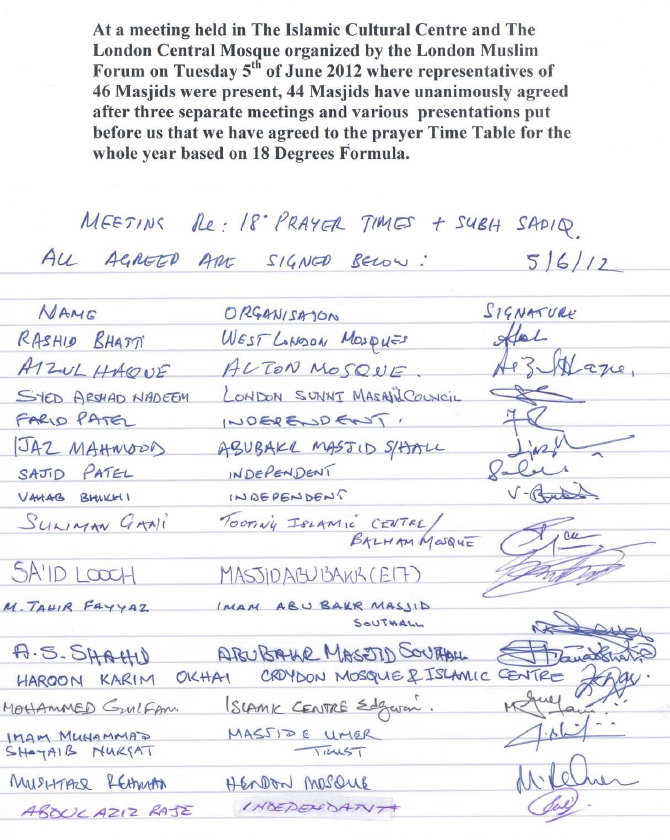 At a meeting held in The Islamic Cultural Centre and The
London Central Mosque organized by the London Muslim
Forum on Tuesday 5th of June 2012 where representatives of
46 Masjids were present, 44 Masjids have unanimously agreed
after three separate meetings and various presentations put
before us that we have agreed to the prayer Time Table for the
whole year based on 18 Degrees Formula.
MEETING Re: 18° PRAYER TIMES + SUBH SADIQ.
ALL AGREED ARE SIGNED BELOW: 5/6/12
NAME ORGANISATION SIGNATURE
RASHID BHATTI WEST LONDON MOSQUES
AIZUL HAQUE ACTON MOSQUE.
SYED ARSHAD NADEEM LONDON SUNNI MASAJID COUNCIL
FARID PATEL INDEPENDENT.
IJAZ MAHMOOD ABUBAKR MASJID S/HALL
SAJID PATEL INDEPENDENT
VAHAB BHIKHI INDEPENDENT
SULIMAN GANI TOOTING ISLAMIC CENTRE/
BALHAM MOSQUE
SA'ID LOOCH MASJID ABUBAKR (E17)
M. TAHIR FAYYAZ IMAM ABU BAKR MASJID
SOUTHALL
A.S. SHAHID ABUBAKR MASJID SOUTHALL
HAROON KARIM OKHAI CROYDON MOSQUE & ISLAMIC CENTRE
MOHAMMED GULFAM. ISLAMIC CENTRE Edgware.
IMAM MUHAMMAD MASJID E UMER
SHOYAIB NURGAT TRUST
MUSHTAQ REHMAN HENDON MOSQUE M. Rehman
ABDUL AZIZ RAJE INDEPENDANT